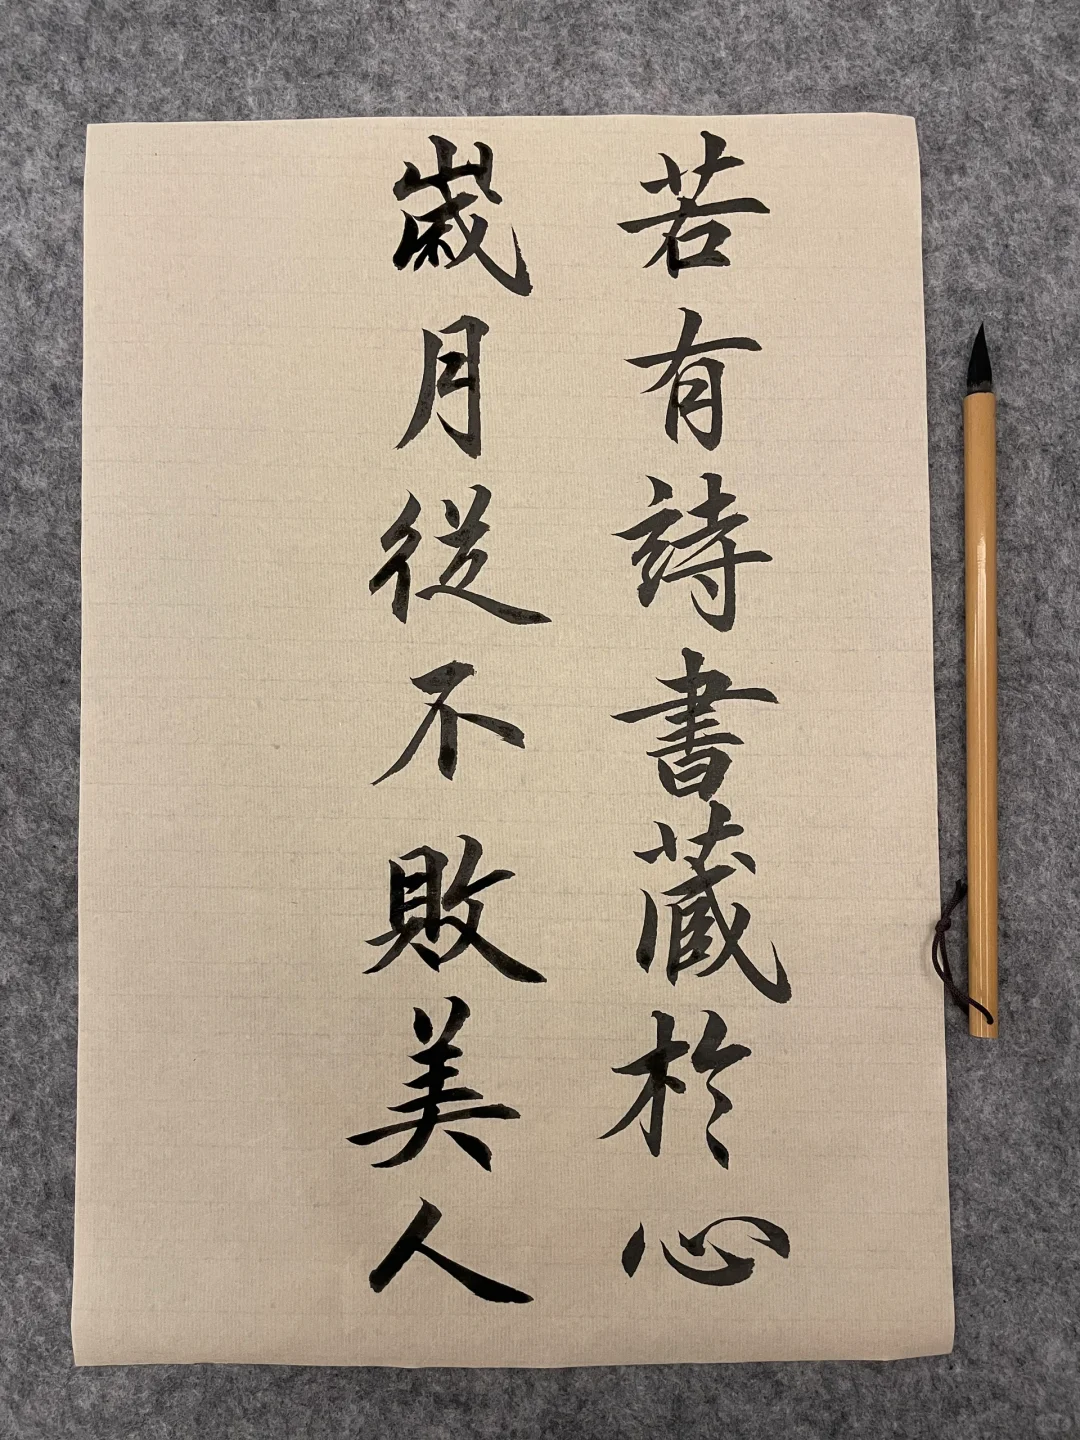 若有詩書藏於心
歲月從不敗美人